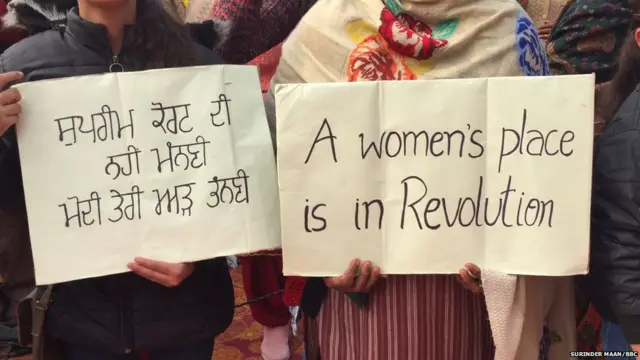 ਸੁਪਰੀਮ ਕੋਰਟ ਦੀ
ਨਹੀਂ ਮੰਨਣੀ
ਮੋਦੀ ਤੇਰੀ ਅੜ ਭੰਨਣੀ
A women's place
is in Revolution
SURINDER MAAN/BBC